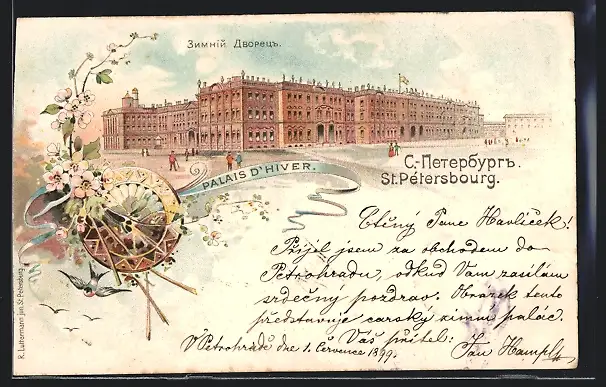 Зимній Дворецъ.
PALAIS D'HIVER.
С.-Петербургъ.
St. Pétersbourg.
Ctěný Pane Havlíček!
Přijel jsem za obchodem do
Petrohradu, odkud Vám zasílám
srdečný pozdrav. Obrázek tento
představuje carský zimní palác.
Váš přítel:
V Petrohradě dne 1. Července 1899.
Jan Hampl
R. Luitermann jun. St. Petersburg.